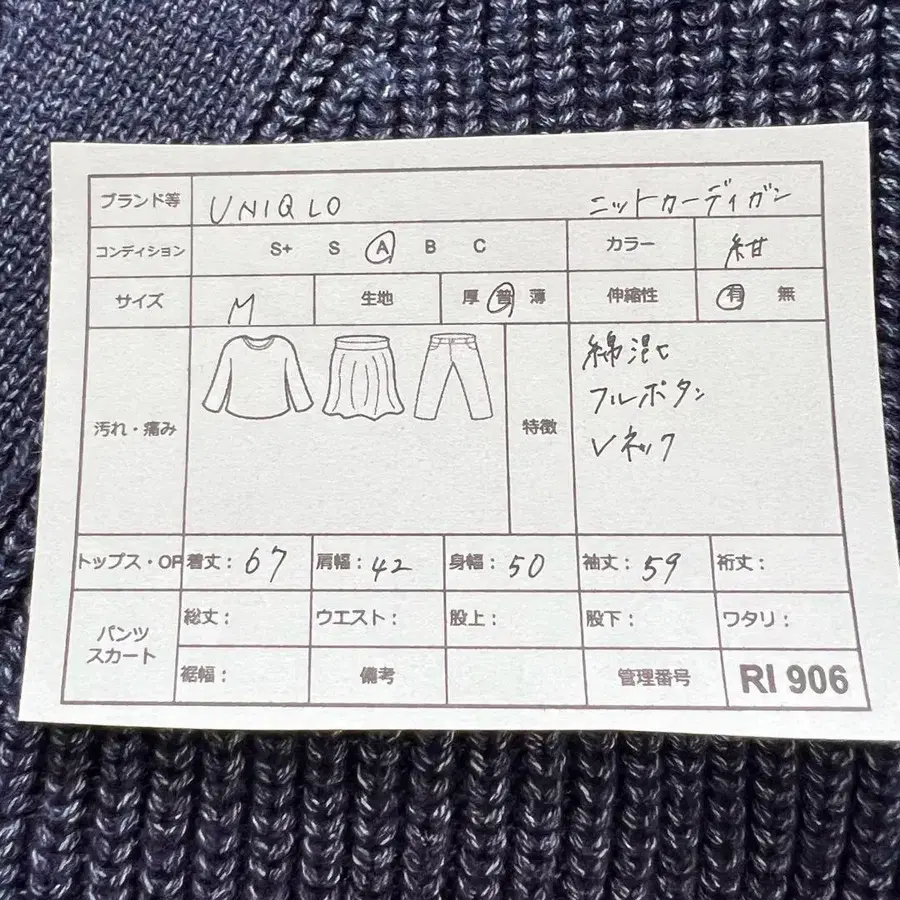 ブランド等 UNIQLO ニットカーディガン
コンディション S+ S A B C カラー 紺
サイズ M 生地 厚 普 薄 伸縮性 有 無
汚れ・痛み 特徴 綿混
フルボタン
Vネック
トップス・OP 着丈: 67 肩幅: 42 身幅: 50 袖丈: 59 裄丈:
パンツ スカート 総丈: ウエスト: 股上: 股下: ワタリ:
裾幅: 備考 管理番号 RI 906